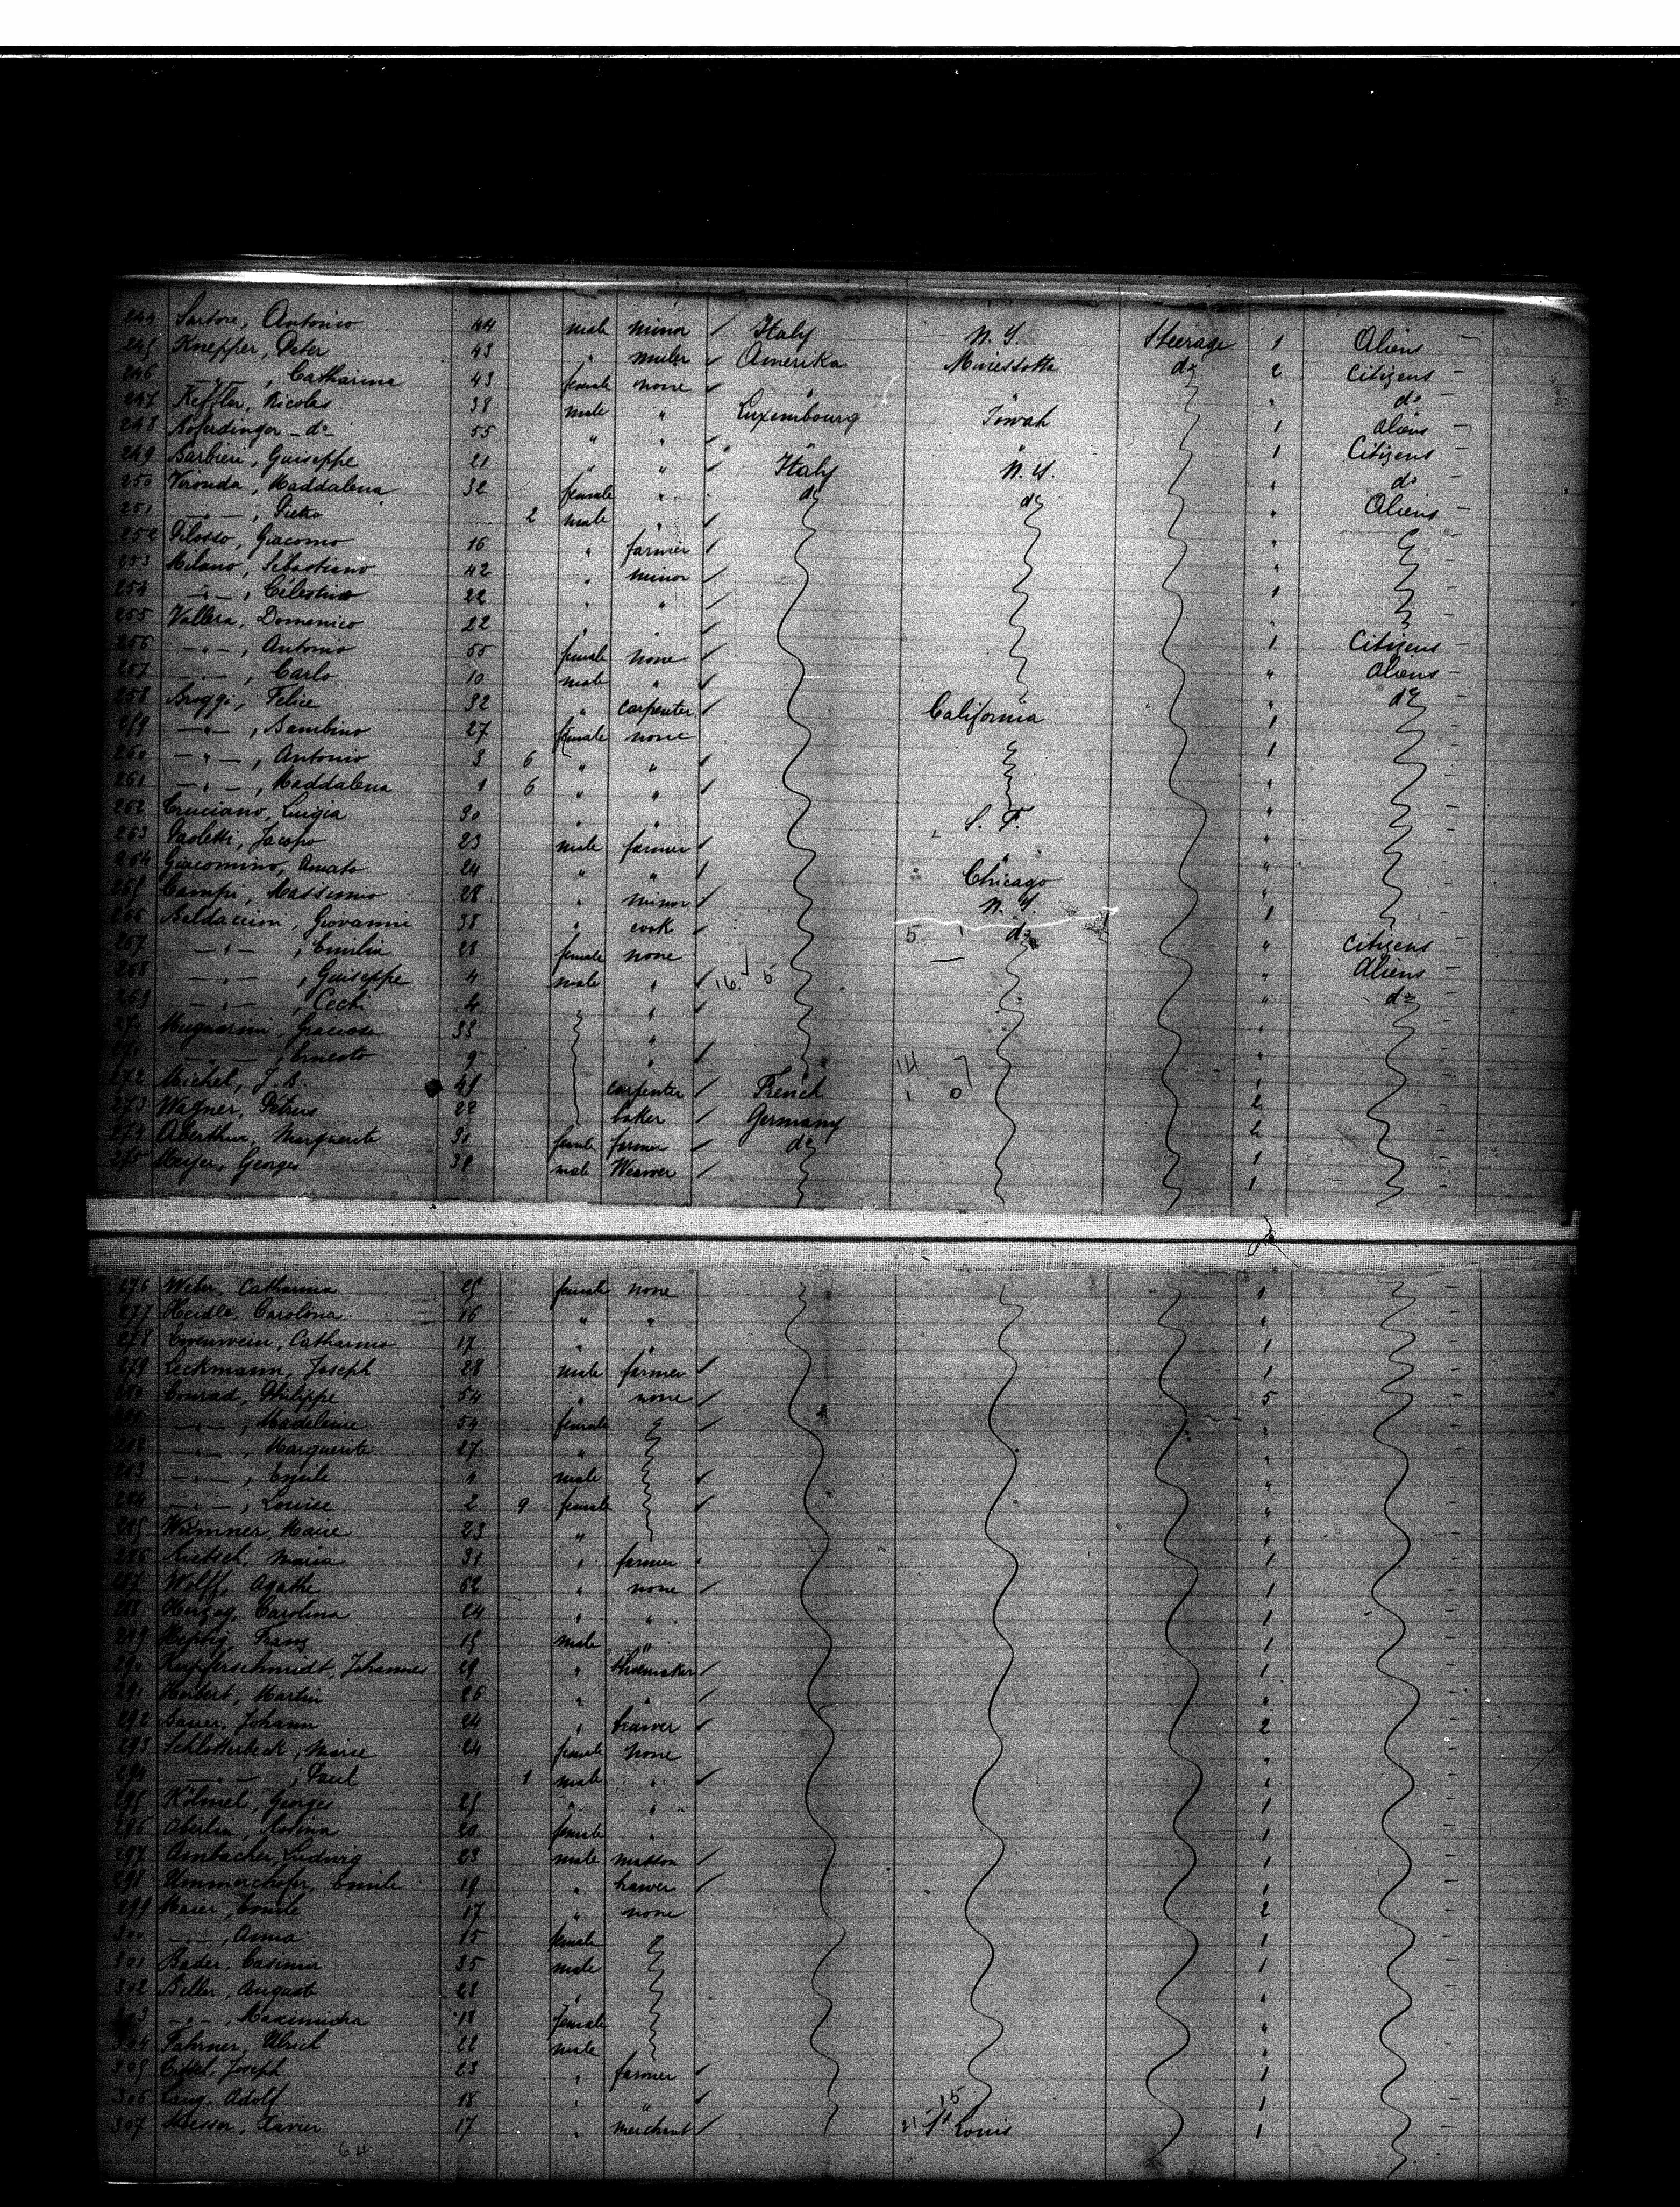 244 Sartore, Antonio 44 male minor Italy N.Y. Steerage 1 Aliens -
245 Knepper, Peter 43 " Amerika Minessotta do 2 Citizens -
246 -"-, Catharina 43 female none " " do
247 Keffler, Nicolas 38 male " Luxembourg Iowah 1 Aliens -
248 Koferdinger -do- 55 " " " " 1 Citizens -
249 Barbieri, Guiseppe 21 " " Italy N.Y. " do
250 Vironda, Maddalena 32 female " do do " Aliens -
251 -"-, Pietro 2 male "
252 Filosso, Giacomo 16 " farmer "
253 Milano, Sebastiano 42 " minor "
254 -"-, Celestino 22 " " 1
255 Vallera, Domenico 22 " " "
256 -"-, Antonio 55 female none 1 Citizens -
257 -"-, Carlo 10 male " " Aliens -
258 Broggi, Felice 32 " carpenter California " do
259 -"-, Bambino 27 female none 1
260 -"-, Antonio 3 6 " " 1
261 -"-, Maddalena 1 6 " " "
262 Cruciano, Luigia 30 " " S. F. "
263 Paoletti, Jacopo 23 male farmer " "
264 Giacomino, Amato 24 " " Chicago "
265 Campi, Massimo 28 " minor N.Y. "
266 Baldaccini, Giovanni 38 " cook 5 1 do 1
267 -"-, Emilia 28 female none " Citizens
268 -"-, Guiseppe 4 male " 16 5 " Aliens -
269 -"-, Cechi " " do
270 Mugnarini, Graciosa 33 " "
271 -"-, Ernesto 9 " 14 7 "
272 Michel, J. B. carpenter French 1 0 1
273 Wagner, Petrus 22 baker Germany 2
274 Aberthur, Marguerite 31 female farmer do 2
275 Meyer, Georges male Weawer 1
1
276 Weber, Catharina 25 female none 1
277 Heidle, Carolina 16 " " "
278 Catharina 17 " " 1
279 Leckmann, Joseph 28 male farmer 1
280 Conrad, Philippe 54 " none 5
281 -"-, Madeleine 54 female "
282 -"-, Marguerite 27 " "
283 -"-, Emile male "
284 -"-, Louise 2 9 female "
285 Wummer, Marie 23 " 1
286 Maria 31 " farmer 1
287 Wolff, Agathe 62 " none 1
288 Herzog, Carolina 24 " " 1
289 Franz 15 male " 1
290 Kupferschmidt, Johannes 29 " shoemaker 1
291 Martin 26 " " "
292 Bauer, Johann 24 " 2
293 Schlotterbeck, Marie 24 female none "
294 -"-, Paul 1 male " "
295 Kölmel, Georges 25 " " 1
296 Oberlin, Rosina 20 female " 1
297 Ambacher, Ludwig 23 male masson 1
298 Ummerchofer, Emile 19 " 1
299 Maier, Emile 17 " none 2
300 -"-, Anna 15 female 1
301 Bader, Casimir 35 male 1
302 Beller, August 28 " "
303 -"-, 18 female "
304 Fahrner, Ulrich 22 male "
305 Joseph 23 " farmer 1
306 Lang, Adolf 18 " " 15 1
307 Xavier 17 " merchant 21 St Louis 1
64